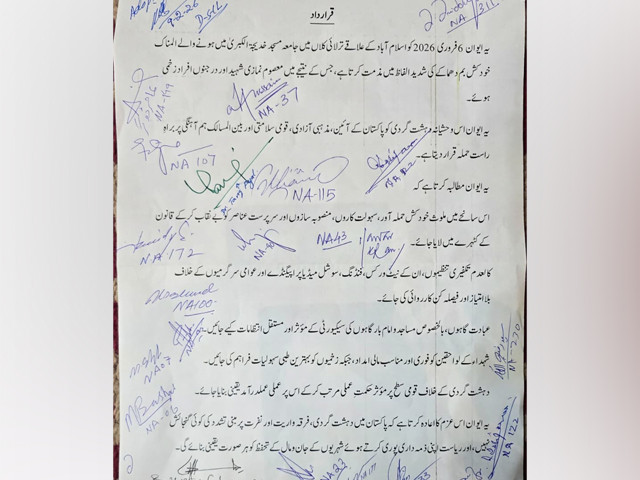 قرارداد
9-2-26
NA 311
یہ ایوان 6 فروری 2026 کو اسلام آباد کے علاقے ترلائی کلاں میں جامعہ مسجد خدیجۃ الکبریٰ میں ہونے والے المناک
خودکش بم دھماکے کی شدید الفاظ میں مذمت کرتا ہے، جس کے نتیجے میں معصوم نمازی شہید اور درجنوں افراد زخمی
ہوئے۔
NA-37
یہ ایوان اس وحشیانہ دہشت گردی کو پاکستان کے آئین، مذہبی آزادی، قومی سلامتی اور بین المسالک ہم آہنگی پر براہ
راست حملہ قرار دیتا ہے۔
NA 107
NA-115
یہ ایوان مطالبہ کرتا ہے کہ
اس سانحے میں ملوث خودکش حملہ آور، سہولت کاروں، منصوبہ سازوں اور سرپرست عناصر کو بے نقاب کر کے قانون
کے کٹہرے میں لایا جائے۔
NA 172
NA43
کالعدم تکفیری تنظیموں، ان کے نیٹ ورکس، فنڈنگ، سوشل میڈیا پراپیگنڈے اور عوامی سرگرمیوں کے خلاف
بلا امتیاز اور فیصلہ کن کارروائی کی جائے۔
NA100
عبادت گاہوں، بالخصوص مساجد و امام بارگاہوں کی سیکیورٹی کے مؤثر اور مستقل انتظامات کیے جائیں۔
شہداء کے لواحقین کو فوری اور مناسب مالی امداد، جبکہ زخمیوں کو بہترین طبی سہولیات فراہم کی جائیں۔
دہشت گردی کے خلاف قومی سطح پر مؤثر حکمت عملی مرتب کر کے اس پر عملی عملدرآمد یقینی بنایا جائے۔
یہ ایوان اس عزم کا اعادہ کرتا ہے کہ پاکستان میں دہشت گردی، فرقہ واریت اور نفرت پر مبنی تشدد کی کوئی گنجائش
نہیں، اور ریاست اپنی ذمہ داری پوری کرتے ہوئے شہریوں کے جان و مال کے تحفظ کو ہر صورت یقینی بنائے گی۔
NA 122